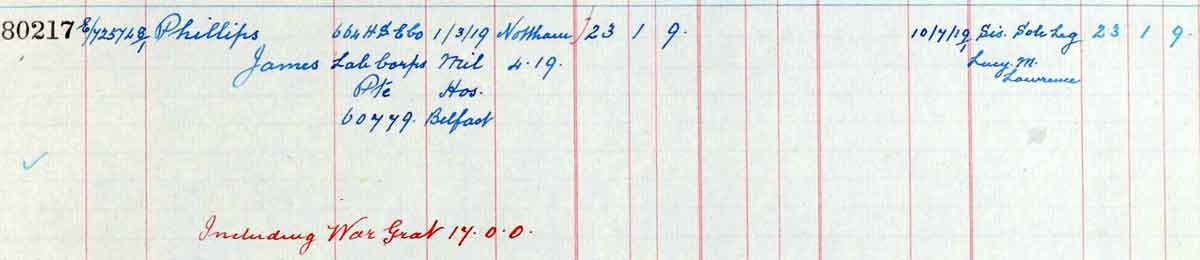 80217 E/725749/1 Phillips 664 H S Ebo 1/3/19 Nottham 23 1 9. 10/7/19 Sis. Sole Leg 23 1 9.
James Lab Corps Mil 4.19. Lucy. M.
Pte Hos. Lawrence
60779. Belfast
Including War Grat 17.0.0.